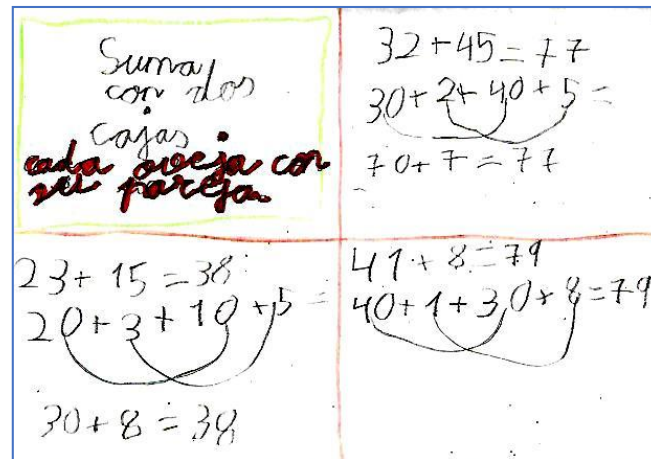 Suma
con dos
cajas.
cada oveja con
su pareja.
32+45=77
30+2+40+5=
70+7=77
23+15=38
20+3+10+5=
30+8=38
41+8=79
40+1+30+8=79